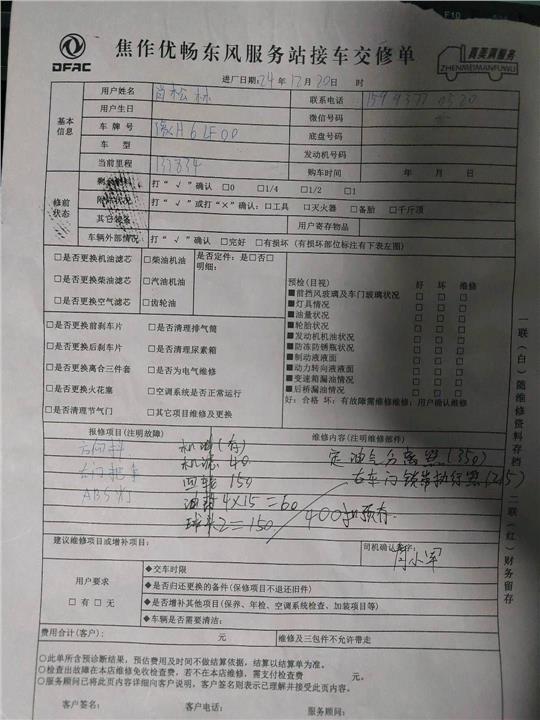 DFAC
焦作优畅东风服务站接车交修单
真美满服务
ZHENMEIMANFUWU
进厂日期:24年12月20日 时
基本信息
用户姓名 联系电话
用户生日 微信号码
车牌号 豫H6LF00 底盘号码
车型 发动机号码
当前里程 137834 购车时间 年 月 日
修前状态
打“√”确认 □0 □1/4 □1/2 □1
打“√”或打“×”确认:□工具 □灭火器 □备胎 □千斤顶
用户寄存物品
车辆外部情况 打“√”确认 □完好 □有损坏(有损坏部位标注有下表左图)
□是否更换机油滤芯 □柴油机油 是否定件:是□否□
□是否更换柴油滤芯 □汽油机油 明细:
□是否更换空气滤芯 □齿轮油
□是否更换前刹车片 □是否清理排气筒
□是否更换后刹车片 □是否清理尿素箱
□是否更换离合三件套 □是否为电气维修
□是否更换火花塞 □空调系统是否正常运行
□是否清理节气门 □其它项目维修及更换
预检(目视) 好 坏 维修
■前挡风玻璃及车门玻璃状况 □ □ □
■灯具情况 □ □ □
■油量状况 □ □ □
■轮胎状况 □ □ □
■发动机机油状况 □ □ □
■防冻防锈瓶状况 □ □ □
■制动液液面 □ □ □
■动力转向液液面 □ □ □
■变速箱漏油情况 □ □ □
■后桥漏油情况 □ □ □
好:合格 坏:有故障需维修维修:用户确认维修
报修项目(注明故障) 维修内容(注明维修部件)
方向
ABS灯
机油(有)
机滤 40
四轮 150
油 4×15=60
球头2=150
定油气分离器(350)
右车门锁带执行器(215)
400 预存
建议维修项目或增补项目:
司机确认签字:
用户要求
□有 □无
◆交车时限
◆是否归还更换的备件(保修项目不退还旧件)
◆是否增补其他项目(保养、年检、空调系统检查、加装项目等)
◆车辆是否需要清洁:
费用合计(客户): 元 维修及三包件不允许带走
○此单所含预诊断结果,预估费用及时间不做结算依据,结算以结算单为准。
○检查出故障在本店维修免收检查费,若不在本店维修,需支付检查费 元。
○服务顾问已将此页内容详细向客户说明,客户签名则表示已理解并接受此页内容。
客户签名: 客户电话: 服务顾问:
一联(白)随维修资料存档 二联(红)财务留存